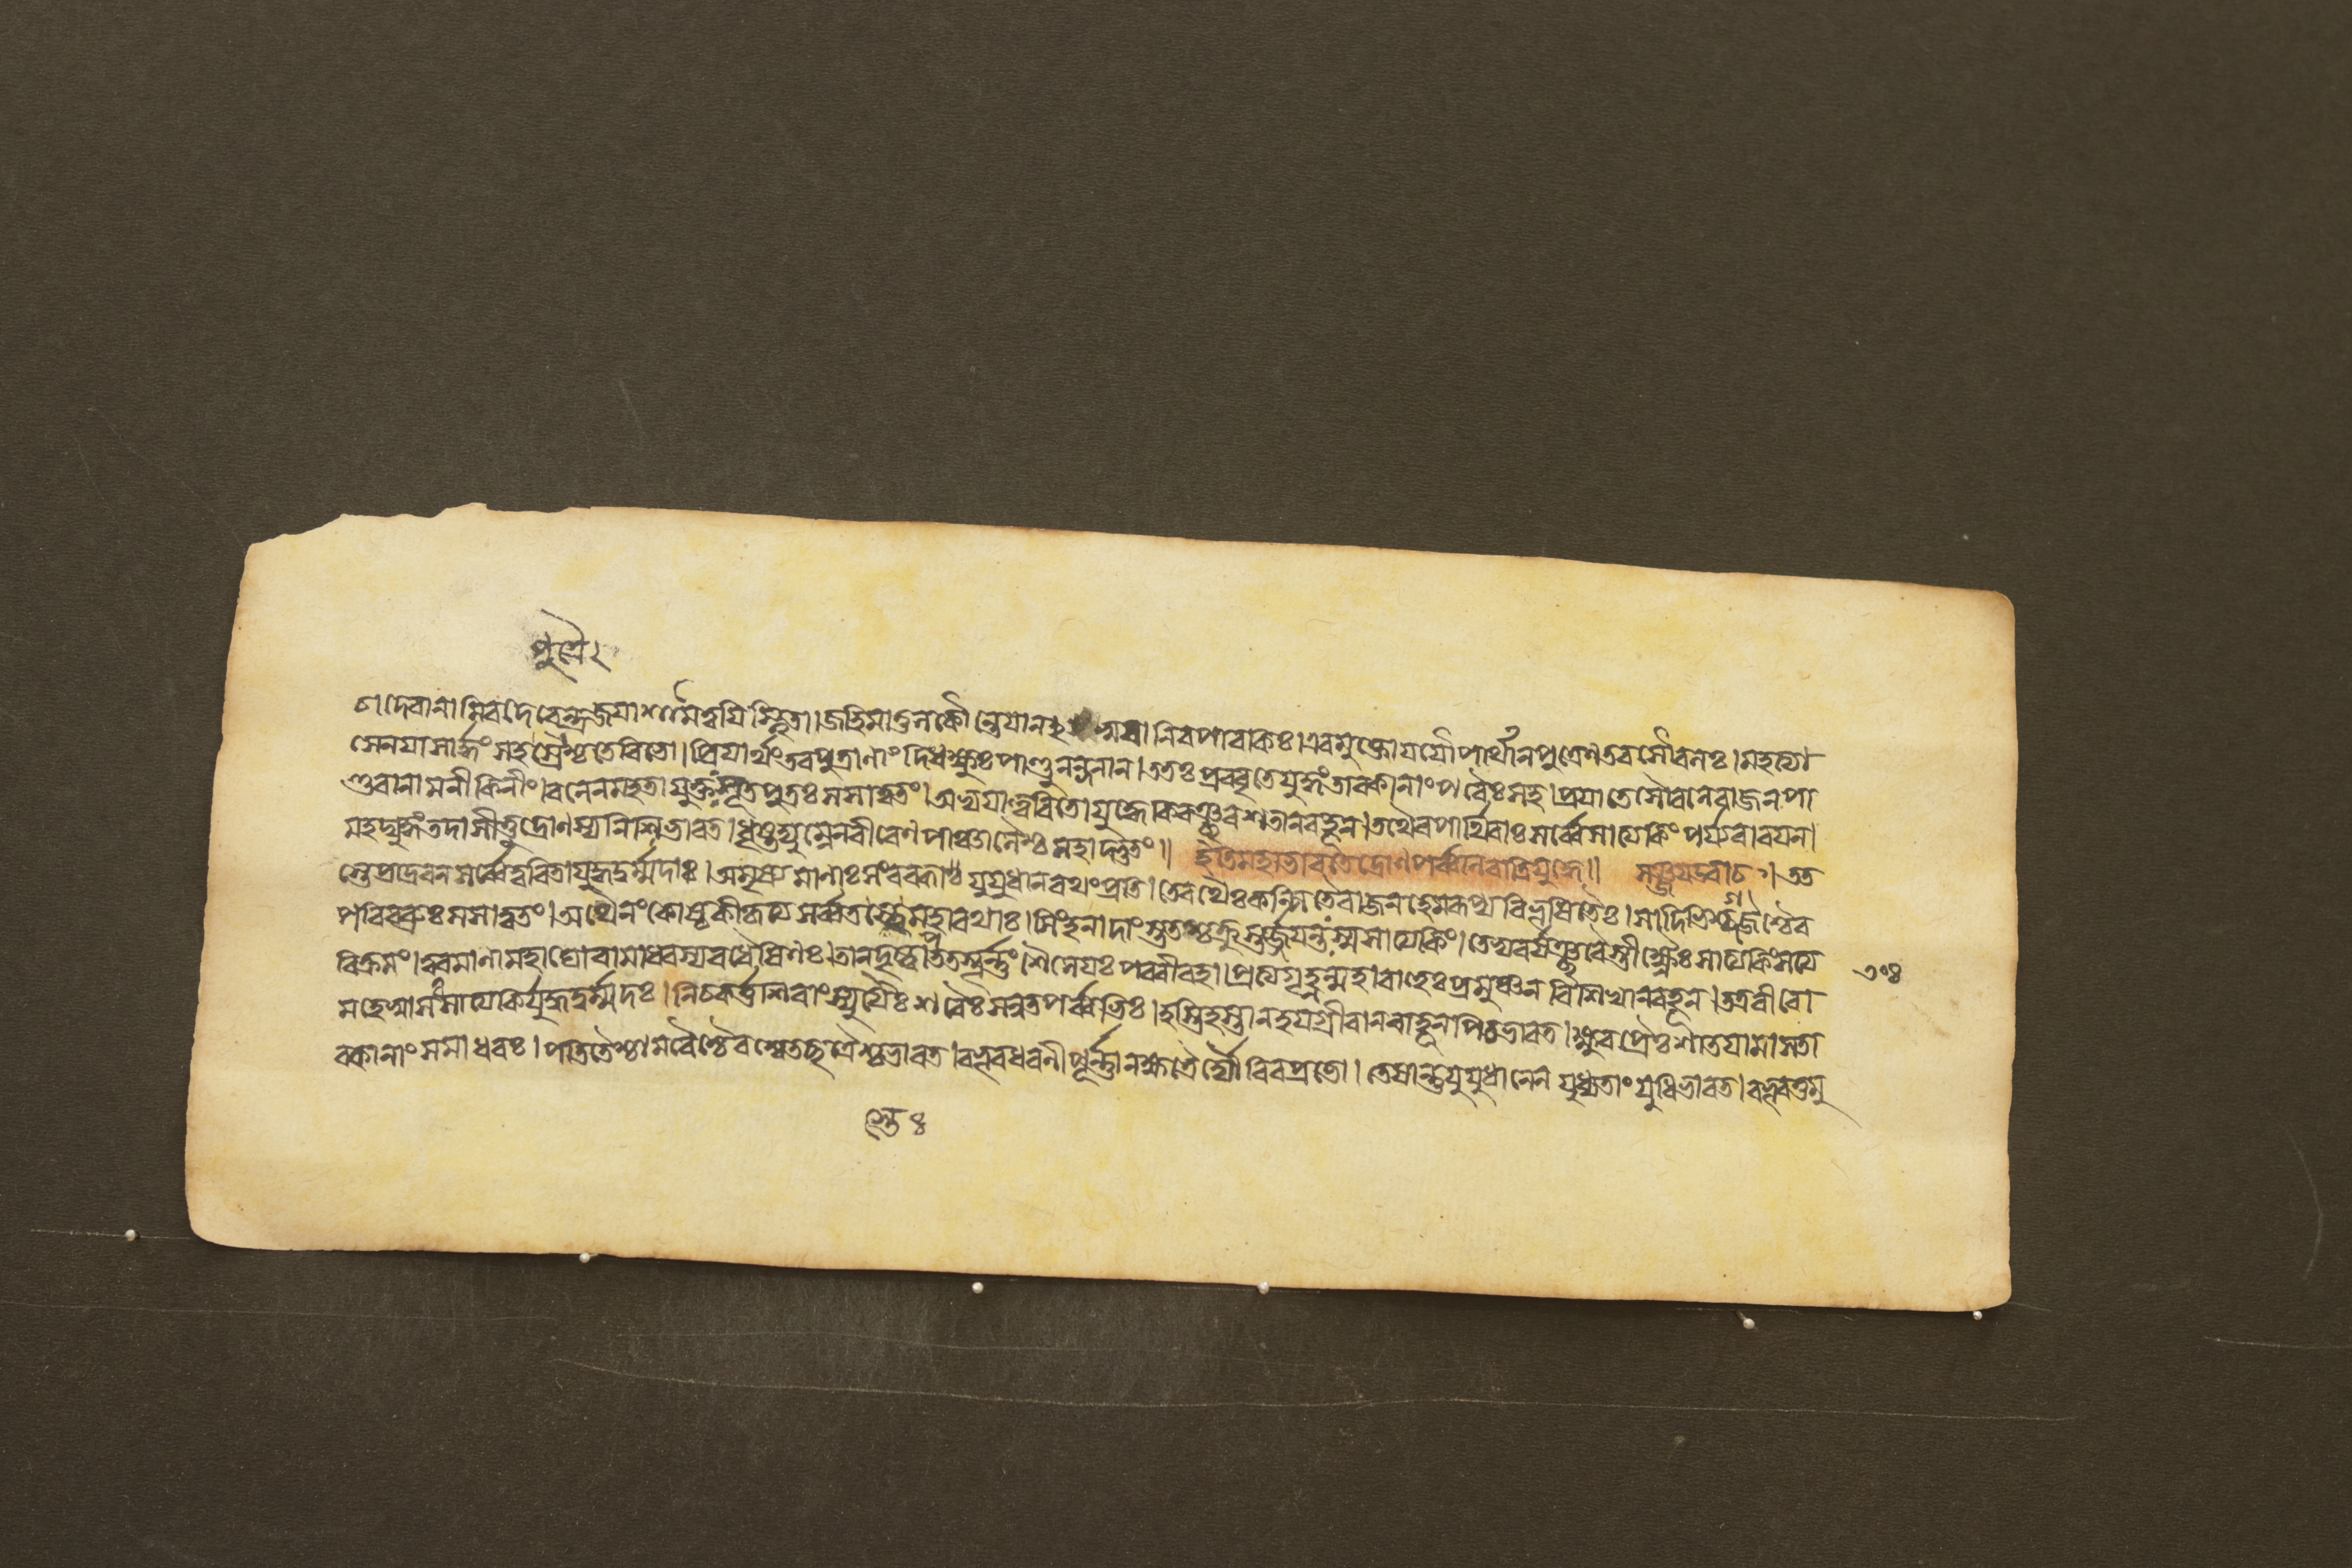 পুত্রৈঃ
চ। দেবানামিব দেবেন্দ্র জয়াশা মে ত্বয়ি স্থিতা। জহি মাতুল কৌন্তেয়ান নিব পাবকিঃ। এবমুক্তো যযৌ পার্থান পুত্রেণ তব সৌবলঃ। মহত্যা
সেনয়া সার্দ্ধং সহ শ্চ তে বিভো। প্রিয়ার্থং তব পুত্রাণাং দিধক্ষুঃ পাণ্ডুনন্দনান। ততঃ প্রববৃতে যুদ্ধং তাবকানাং পরৈঃ সহ। প্রয়াতে সৌবলে রাজন পা
ণ্ডবানামনীকিনীং। বলেন মহতা যুক্তঃ সূতপুত্রঃ সসাত্বতং। অভ্যয়াত্ত্বরিতো যুদ্ধে কিরঞ্ছরশতান বহূন। তথৈব পার্থিবাঃ সর্ব্বে সাত্যকিং পর্য্যবারয়ন।
মহদ্যুদ্ধং তদাসীত্তু দ্রোণস্য নিশি ভারত। ধৃষ্টদ্যুম্নেন বীরেণ পাঞ্চালৈশ্চ মহাদ্ভুতং॥ ইতি মহাভারতে দ্রোণপর্ব্বণি রাত্রিযুদ্ধে॥ সঞ্জয় উবাচ। তত
স্তে প্রাদ্রবন সর্ব্বে ত্বরিতা যুদ্ধদুর্ম্মদাঃ। অমৃষ্যমাণাঃ সংরব্ধা যুযুধানরথং প্রতি। তে রথৈঃ কল্পিতৈ রাজন হেমরূপ্যবিভূষিতৈঃ। সাদিভিশ্চ গজৈশ্চৈব
পরিবব্রুঃ সসাত্বতং। অথৈনং কোষ্ঠকীকৃত্য সর্ব্বতস্তে মহারথাঃ। সিংহনাদাংস্ততশ্চক্রুস্তর্জ্জয়ন্তঃ স্ম সাত্যকিং। তেভ্যবর্ষঞ্ছরৈস্তীক্ষ্ণৈঃ সাত্যকিং সত্য
বিক্রমং। ত্বরমাণা মহাঘোরা মাধবস্য বধৈষিণঃ। তান দৃষ্ট্বা পততস্তূর্ণং শৈনেয়ঃ পরবীরহা। প্রত্যগৃহ্ণন্মহাবাহুঃ প্রমুঞ্চন বিশিখান বহূন। তত্র বীরো
মহেষ্বাসঃ সাত্যকির্যুদ্ধদুর্ম্মদঃ। নিচকর্ত্ত শিরাংস্যুগ্রৈঃ শরৈঃ সন্নতপর্ব্বভিঃ। হস্তিহস্তান হয়গ্রীবান বাহূনপি চ ভারত। ক্ষুরপ্রৈঃ শাতয়ামাস তা
বকানাং সমাধবঃ। পতিতৈশ্চামরৈশ্চৈব শ্বেতচ্ছত্রৈশ্চ ভারত। বভূব ধরণী পূর্ণা নক্ষত্রৈর্দ্যৌরিব প্রভো। তেষান্তু যুযুধানেন যুধ্যতাং যুধি ভারত। বভূব তুমু